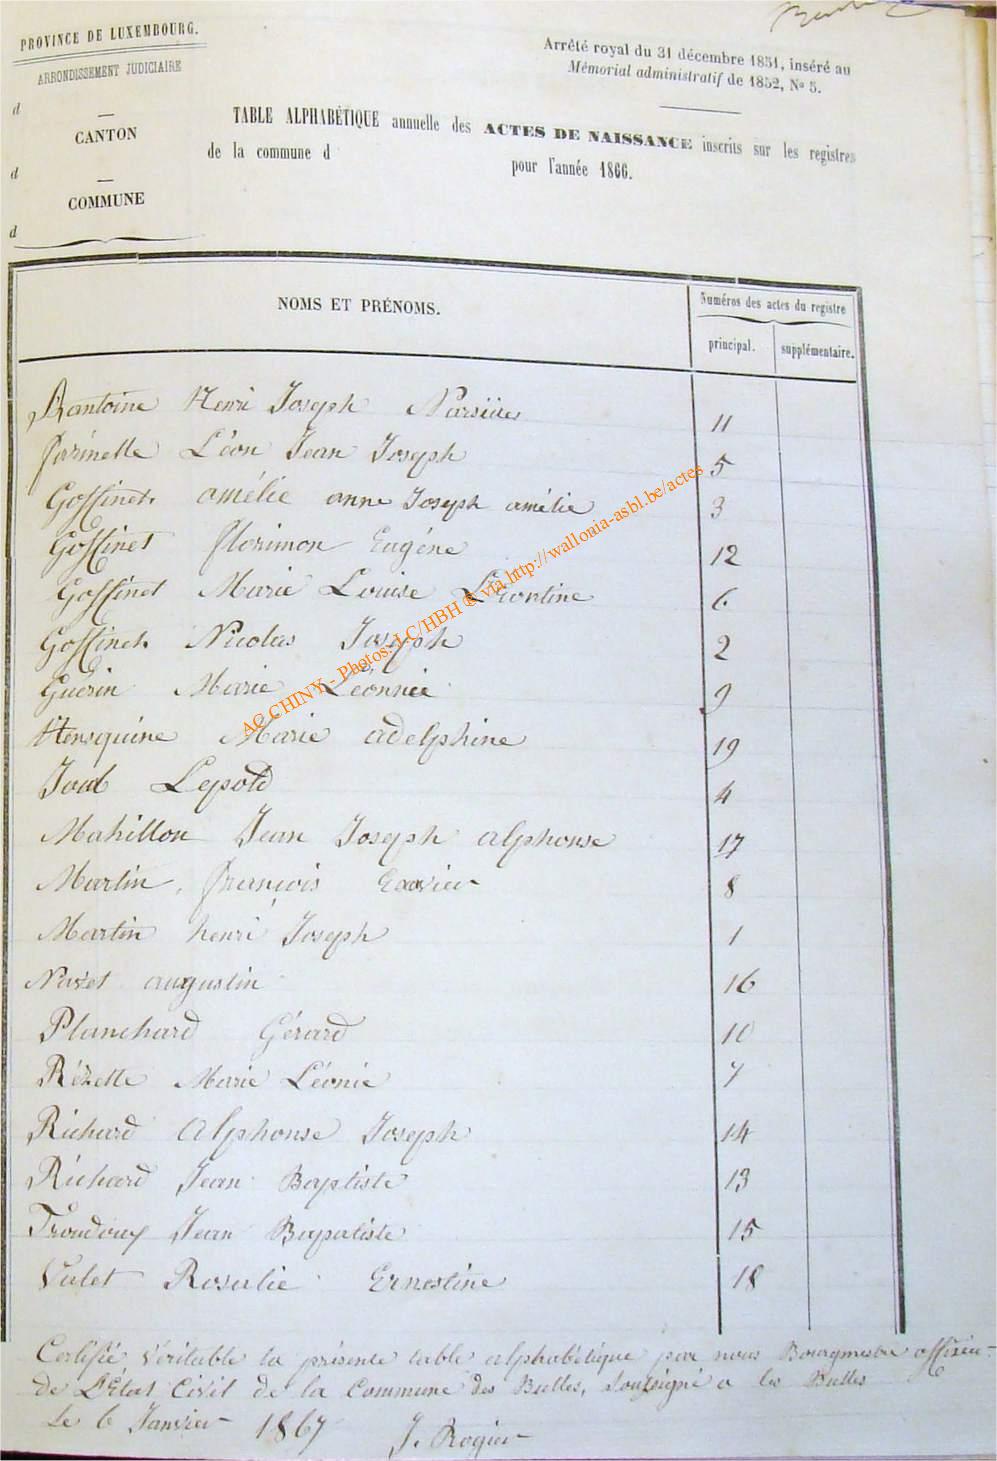 PROVINCE DE LUXEMBOURG.
ARRONDISSEMENT JUDICIAIRE
d
CANTON
d
COMMUNE
d
Arrêté royal du 31 décembre 1851, inséré au
Mémorial administratif de 1852, No 5.
TABLE ALPHABÉTIQUE annuelle des ACTES DE NAISSANCE inscrits sur les registres
de la commune d
pour l'année 1866.
NOMS ET PRÉNOMS.
Numéros des actes du registre
principal. supplémentaire.
Henri Joseph 11
Léon Jean Joseph 5
Goffinet amélie anne Joseph amélie 3
Goffinet florimon Eugéne 12
Goffinet Marie Louise Léontine 6
Goffinet Nicolas Joseph 2
Guérin Marie Léonnie 9
Hensquine Marie adelphine 19
Lepold 4
Mahillon Jean Joseph alphonse 17
Martin, françois Exavier 8
Martin henri Joseph 1
Nazet augustin 16
Planchard Gérard 10
Rézette Marie Léonie 7
Richard Alphonse Joseph 14
Richard Jean Baptiste 13
Jean Bapatiste 15
Valet Rosalie Ernestine 18
Certifié, Véritable la présente table alphabétique par nous Bourgmestre officier
de L'Etat Civil de la Commune des Bulles, Soussigné a les Bulles
Le 6 Janvier 1867 J. Rogier
AC CHINY - Photos: LC/HBH ® via http://wallonia-asbl.be/actes